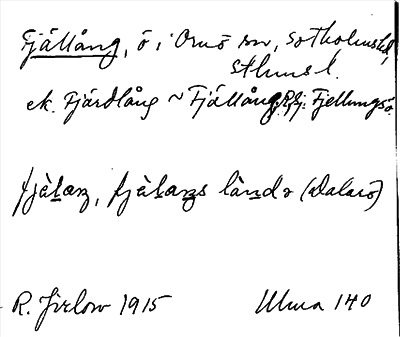 Fjällång, ö i Ornö sn, Sotholms hd,
Sthms l.
ek. Fjärdlång ~ Fjällång. Rej: Fjellungsö.
fjàlaŋ, fjàlaŋs làndə (Dalarö)
R. Jirlow 1915 Ulma 140